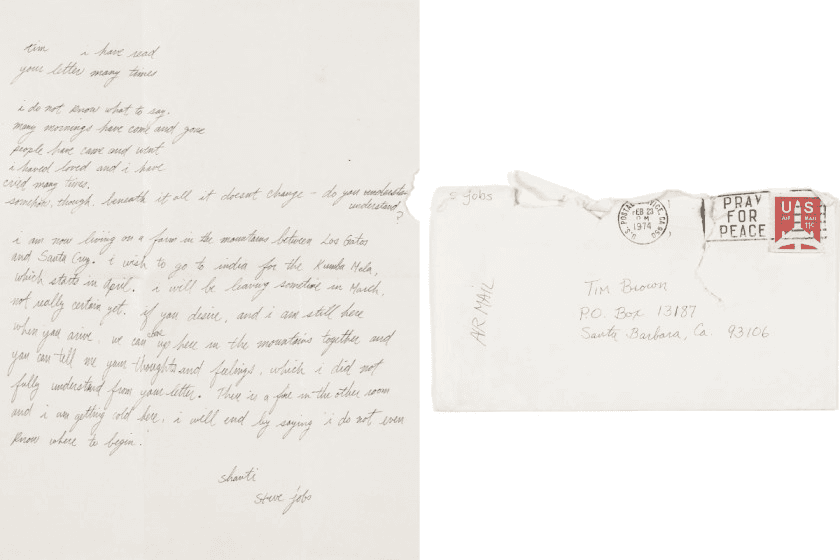 tim i have read
your letter many times
i do not know what to say.
many mornings have come and gone
people have came and went
i haved loved and i have
cried many times.
somehow, though, beneath it all it doesnt change - do you
understand?
i am now living on a farm in the mountains between Los Gatos
and Santa Cruz. i wish to go to india for the Kumba Mela,
which starts in april. i will be leaving sometime in March,
not really certain yet. if you desire, and i am still here
when you arive, we can be up here in the mountains together and
you can tell me your thoughts and feelings, which i did not
fully understand from your letter. There is a fire in the other room
and i am getting cold here. i will end by saying i do not even
know where to begin.
shanti
steve jobs
S Jobs
U.S. POSTAL SERVICE, CA
FEB 23
PM
1974
PRAY
FOR
PEACE
USA
AIR MAIL
11c
AIR MAIL
Tim Brown
P.O. Box 13187
Santa Barbara, Ca. 93106